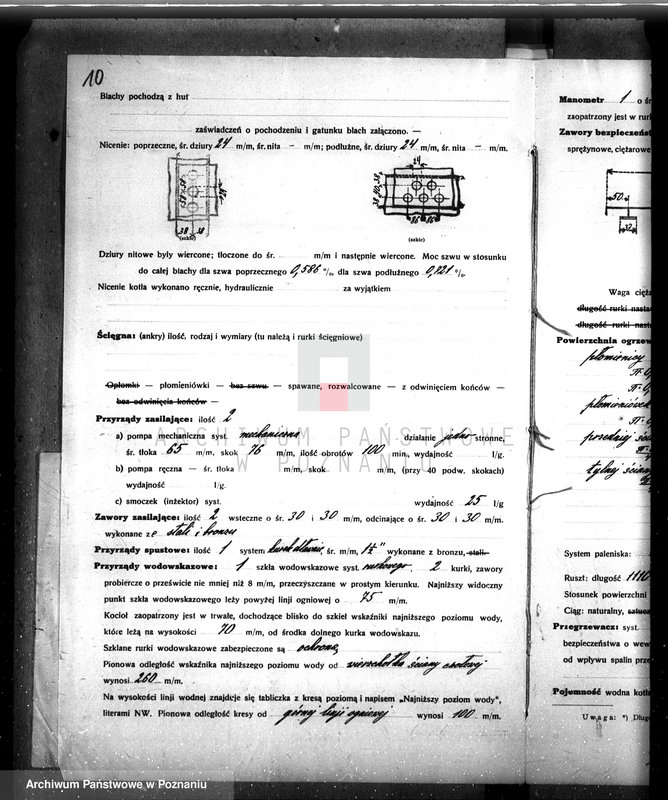 10
Blachy pochodzą z hut
zaświadczeń o pochodzeniu i gatunku blach załączono. —
Nicenie: poprzeczne, śr. dziury 24 m/m, śr. nita – m/m; podłużne, śr. dziury 24 m/m, śr. nita – m/m.
24
38 38
(szkic)
(szkic)
Dziury nitowe były wiercone; tłoczone do śr. m/m i następnie wiercone. Moc szwu w stosunku
do całej blachy dla szwa poprzecznego 0,586 %, dla szwa podłużnego 0,721 %.
Nicenie kotła wykonano ręcznie, hydraulicznie za wyjątkiem
Ścięgna: (ankry) ilość, rodzaj i wymiary (tu należą i rurki ścięgniowe)
Opłomki — płomieniówki — bez szwu — spawane, rozwalcowane — z odwinięciem końców —
bez odwinięcia końców —
Przyrządy zasilające: ilość 2
a) pompa mechaniczna syst. mechaniczna działanie jedno stronne,
śr. tłoka 65 m/m, skok 76 m/m, ilość obrotów 100 min, wydajność l/g.
b) pompa ręczna — śr. tłoka m/m, skok m/m, (przy 40 podw. skokach)
wydajność l/g.
c) smoczek (inżektor) syst. wydajność 25 l/g
Zawory zasilające: ilość 2 wsteczne o śr. 30 i 30 m/m, odcinające o śr. 30 i 30 m/m.
wykonane ze stali i bronzu
Przyrządy spustowe: ilość 1 system śr. m/m, 1½" wykonane z bronzu, stali
Przyrządy wodowskazowe: 1 szkła wodowskazowe syst. 2 kurki, zawory
probiercze o prześwicie nie mniej niż 8 m/m, przeczyszczane w prostym kierunku. Najniższy widoczny
punkt szkła wodowskazowego leży powyżej linji ogniowej o 75 m/m.
Kocioł zaopatrzony jest w trwałe, dochodzące blisko do szkieł wskaźniki najniższego poziomu wody,
które leżą na wysokości 70 m/m, od środka dolnego kurka wodowskazu.
Szklane rurki wodowskazowe zabezpieczone są ochroną
Pionowa odległość wskaźnika najniższego poziomu wody od wierzchołka ściany
wynosi 260 m/m.
Na wysokości linji wodnej znajduje się tabliczka z kresą poziomą i napisem „Najniższy poziom wody",
literami NW. Pionowa odległość kresy od górnej linji ogniowej wynosi 100 m/m.
Manometr 1 o śr
zaopatrzony jest w rurk
Zawory bezpieczeńst
sprężynowe, ciężarowe
50
32
Waga cięża
długość rurki nasta
długość rurki nasta
Powierzchnia ogrzew
płomienicy
płomieniówek
przedniej ścia
tylnej ściany
System paleniska:
Ruszt: długość 1110
Stosunek powierzchni
Ciąg: naturalny, sztucz
Przegrzewacz: syst.
bezpieczeństwa o wew
od wpływu spalin prze
Pojemność wodna kotła
Uwaga: *) Dług
ARCHIWUM PAŃSTWOWE
W POZNANIU
Archiwum Państwowe w Poznaniu